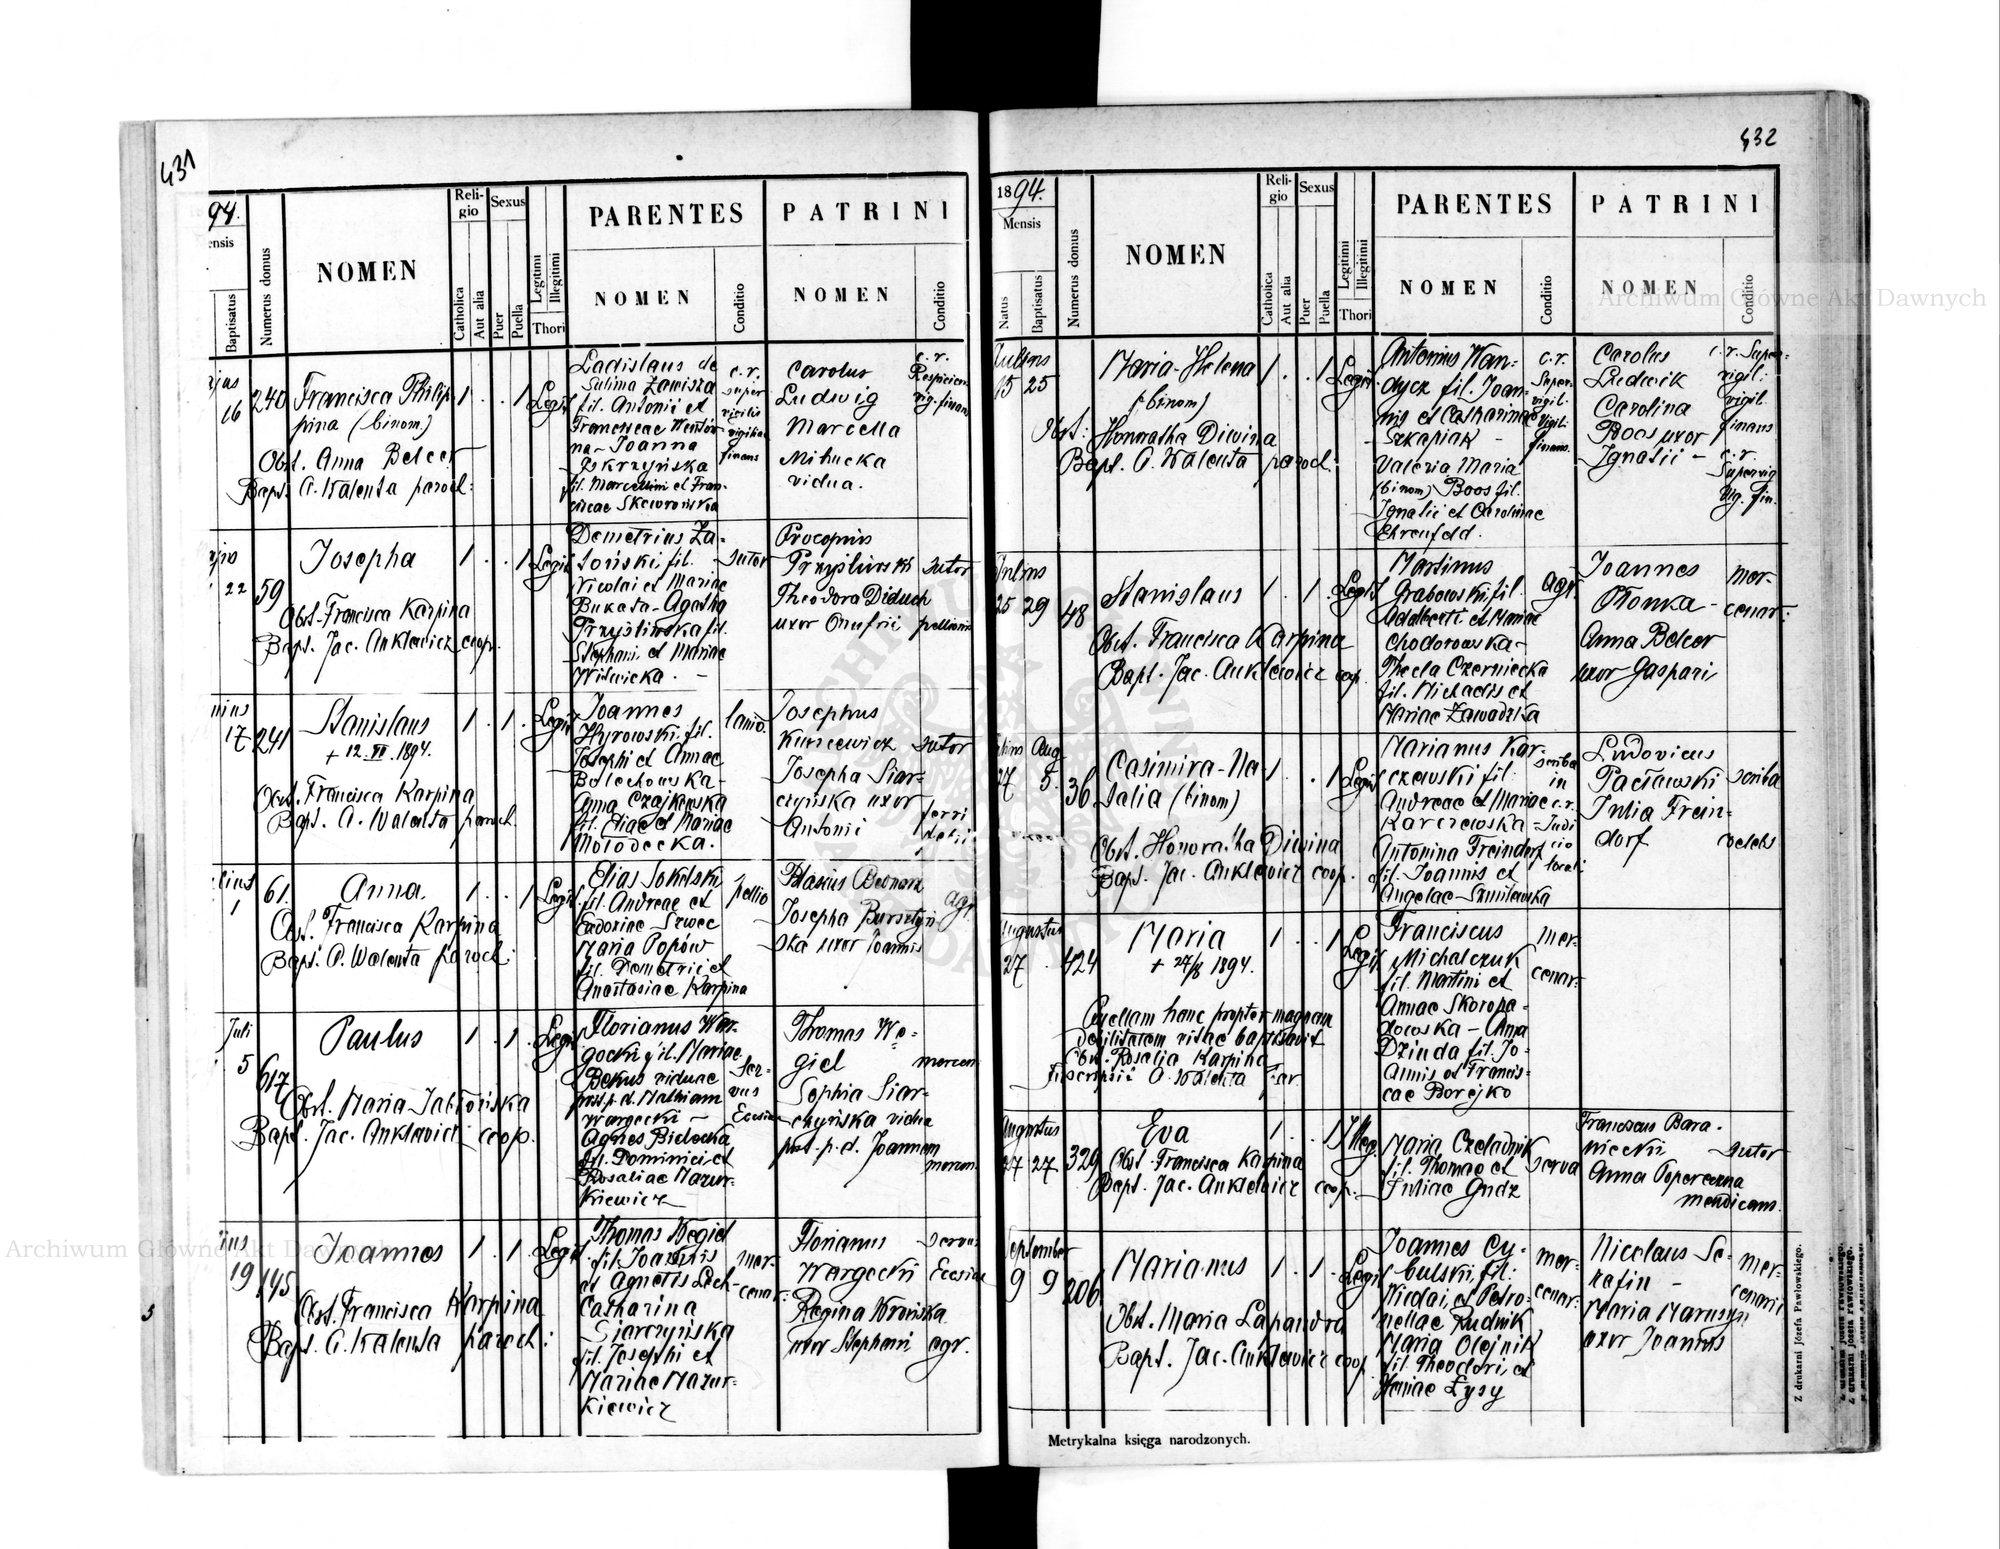 431
94.
ensis
Baptisatus
Numerus domus
NOMEN
Reli-
gio
Catholica
Aut alia
Sexus
Puer
Puella
Legitimi
Illegitimi
Thori
PARENTES
NOMEN
Conditio
PATRINI
NOMEN
Conditio
16
240
Francisca Philip
pina (binom.)
Obst. Anna Belcer
Bapt. A. Walenta paroch:
1 . . 1 Legit
Ladislaus de
Sulima Zawisza
fil. Antonii et
Franciscae
na - Joanna
Iskrzyńska
fil. Marcellini et Fran-
ciscae Skowrońska
c. r.
super
vigilis
finans
Carolus
Ludwig
Marcella
Milucka
vidua.
c. r.
Respicien
vig. finan
22
59
Josepha
Obst. Francisca Karpina
Bapt. Jac. Anklewicz coop.
1 . . 1 Legit
Demetrius Za-
łoński fil.
Nicolai et Mariae
Bukata - Agatha
Przyśliwska fil.
Stephani et Mariae
Witwicka. -
sutor
Procopius
Przyśliwski
Theodora Diduch
uxor Onufrii
sutor
pellionis
17
241
Stanislaus
+ 12.VII.1894.
Obst. Francisca Karpina
Bapt. A. Walenta paroch.
1 . 1 . Legit
Joannes
Hyrowski fil.
Josephi et Annae
Bolechowska -
Anna Czajkowska
fil. Eliae et Mariae
Mołodecka.
lanio.
Josephus
Kuniewicz
Josepha Siar-
czyńska uxor
Antonii
sutor
1
61.
Anna
Obst. Francisca Karpina
Bapt. A. Walenta paroch:
1 . . 1 Legit
Elias Sokolski
fil. Andreae et
Eudoxiae Szwec
Maria Popów
fil. Demetrii et
Anastasiae Karpina
pellio
Blasius Bednarz
Josepha Bursztyń-
ska uxor Joannis
agr.
Juli
5
617
Paulus
Obst. Maria Jabłońska
Bapt. Jac. Anklewicz coop.
1 . 1 . Legit
Florianus War-
gocki fil. Mariae
Bekus viduae
post. p. d. Mathiam
Wargocki -
Agnes Bielecka
fil. Dominici et
Rosaliae Mazur-
kiewicz
ser-
vus
Thomas We-
giel
Sophia Siar-
czyńska vidua
post. p. d. Joannem
mercen.
mercen.
19
145
Joannes
Obst. Francisca Karpina
Bapt. A. Walenta paroch:
1 . 1 . Legit
Thomas Wegiel
fil. Joannis
et Agnetis Lech -
Catharina
Siarczyńska
fil. Josephi et
Mariae Mazur-
kiewicz
mer-
cenar:
Florianus
Wargocki
Regina
uxor Stephani
servus
agr.
432
1894.
Mensis
Natus
Baptisatus
Numerus domus
NOMEN
Reli-
gio
Catholica
Aut alia
Sexus
Puer
Puella
Legitimi
Illegitimi
Thori
PARENTES
NOMEN
Conditio
PATRINI
NOMEN
Conditio
Julius
15 25
Maria-Helena
(binom)
Obst: Honoratha Diwina
Bapt. A. Walenta paroch:
1 . . 1 Legit
Antonius Wan-
dycz fil. Joan-
nis et Catharinae
Szkapiak -
Valeria Maria
(binom) Boos fil.
Ignatii et Carolinae
Ehrenfeld.
c. r.
Super-
vigil.
vigil:
finans.
Carolus
Ludwik
Carolina
Boos uxor
Ignatii -
c. r. Super-
vigil:
vigil.
finans
c. r.
Supervig
vig. fin.
Julius
25 29
48
Stanislaus
Obst. Francisca Karpina
Bapt. Jac. Anklewicz coop.
1 . 1 . Legit
Martinus
Grabowski fil.
Adalberti et Mariae
Chodorowska -
Thecla Czerniecka
fil. Michaelis et
Mariae Zawadzka
agr.
Joannes
Otomka -
Anna Belcer
uxor Gaspari
mer-
cenar:
Julius Aug
27 5.
36
Casimira-Na-
talia (binom)
Obst. Honoratha Diwina
Bapt. Jac. Anklewicz coop.
1 . . 1 Legit
Marianus Kar-
czewski fil.
Andreae et Mariae
Karczewska -
Antonina Freindorf
fil. Joannis et
Angelae - Stanisławska
scriba
in
c. r.
Judi
cio
locali
Ludovicus
Pacławski
Julia Frein-
dorf
scriba
caelebs
Augustus
27
424
Maria
+ 27/8 1894.
Puellam hanc propter magnam
debilitatem vitae baptisavit
Obst. Rosalia Karpina -
Inscripsit A. Walenta Par
1 . . 1 Legit
Franciscus
Michalczuk
fil. Martini et
Annae Skoropa-
dowska - Anna
Dzinda fil. Jo-
annis et Francis-
cae Borejko
mer-
cenar:
Augustus
27 27
329
Eva
Obst. Francisca Karpina
Bapt. Jac. Anklewicz coop.
1 . . 1 Illeg.
Maria Czeladnik
fil. Thomae et
Juliae Gudz
serva
Franciscus Bara-
niecki
Anna Popereczna
sutor
mendicans.
September
9 9
206
Marianus
Obst. Maria Lapandra
Bapt. Jac. Anklewicz coop.
1 . 1 . Legit
Joannes Cy-
bulski, fil:
Nicolai et Petro-
nellae Rudnik
Maria Olejnik
fil. Theodori et
Mariae Łysy
mer-
cenar:
Nicolaus Se-
rafin -
Maria Marusyn
uxor Joannis
mer-
cenarii
Metrykalna księga narodzonych.
Z drukarni Józefa Pawłowskiego.
Archiwum Główne Akt Dawnych
Archiwum Główne Akt Dawnych